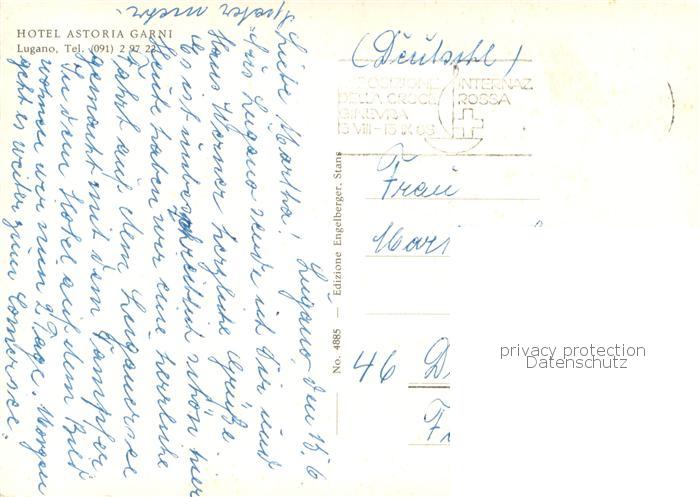 HOTEL ASTORIA GARNI
Lugano, Tel. (091) 2 97 22
Lugano, den 15. 6.
Liebe Martha!
Aus Lugano sende ich Dir und
Hans Werner herzliche Grüße
Es ist unbeschreiblich schön hier
Heute haben wir eine herrliche
Fahrt auf dem Luganersee
gemacht mit dem Dampfer
In dem Hotel auf dem Bild
wohnen wir nun 2 Tage. Morgen
geht es weiter zum Comersee.
Später mehr.
No. 4885 — Edizione Engelberger, Stans
(Deutschl)
INTERNAZ.
DELLA CROCE ROSSA
GINEVRA
15 VIII - 15 IX 63
Frau
46 D
privacy protection
Datenschutz